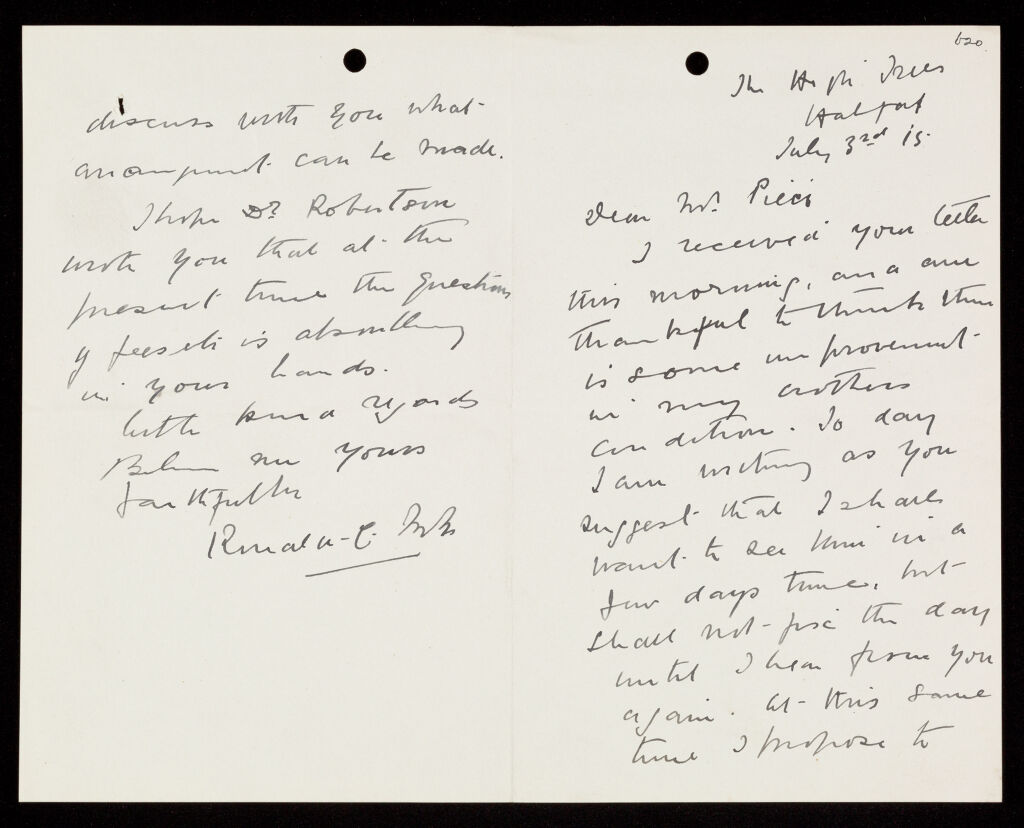 620
The High Trees
July 3rd 15.
Dear Mrs. Pierce
I received your letter
this morning, and am
thankful to think there
is some improvement
in my brothers
condition. To day
I am writing as you
suggest that I shall
want to see him in a
few days time, but
shall not fix the day
until I hear from you
again. At this same
time I propose to
discuss with you what
arrangement can be made.
I hope Dr. Robertson
wrote you that at the
present time the question
of fees etc is absolutely
in your hands.
With kind regards
Believe me yours
faithfully
Ronald